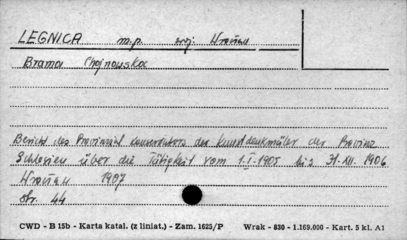 LEGNICA m.p. woj. Wrocław
Brama Chojnowska
Bericht des Provinzial Konservators der Kunstdenkmäler der Provinz
Schlesien über die Tätigkeit vom 1.I.1905 bis 31.XII.1906
Wrocław 1907
str. 44
CWD - B 15b - Karta katal. (z liniat.) - Zam. 1625/P Wrak - 830 - 1.169.000 - Kart. 5 kl. A1